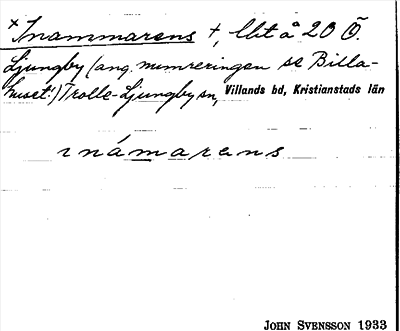 × Inammarens +, litt å 20 Ö.
Ljungby (ang. numreringen se Billa-
huset!) Trolle-Ljungby sn, Villands hd, Kristianstads län
ınámarens
JOHN SVENSSON 1933